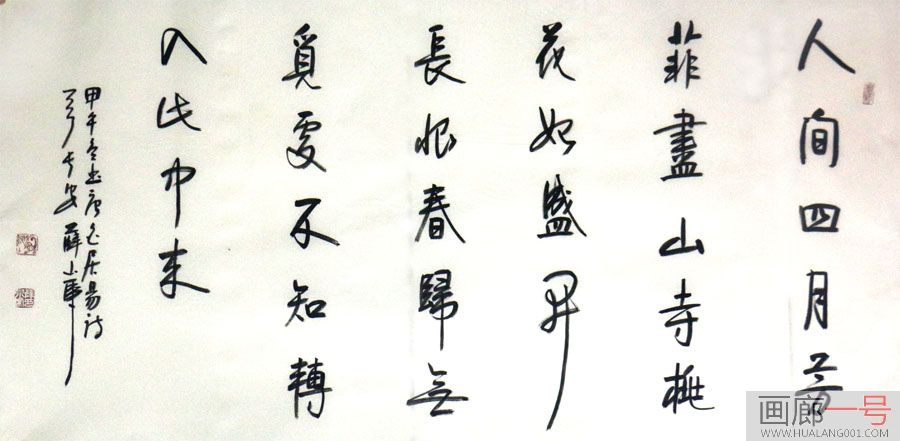 人間四月芳
菲盡山寺桃
花始盛開
長恨春歸無
覓處不知轉
入此中來
甲午冬書唐白居易詩
安 薛
画廊一号
WWW.HUALANG001.COM